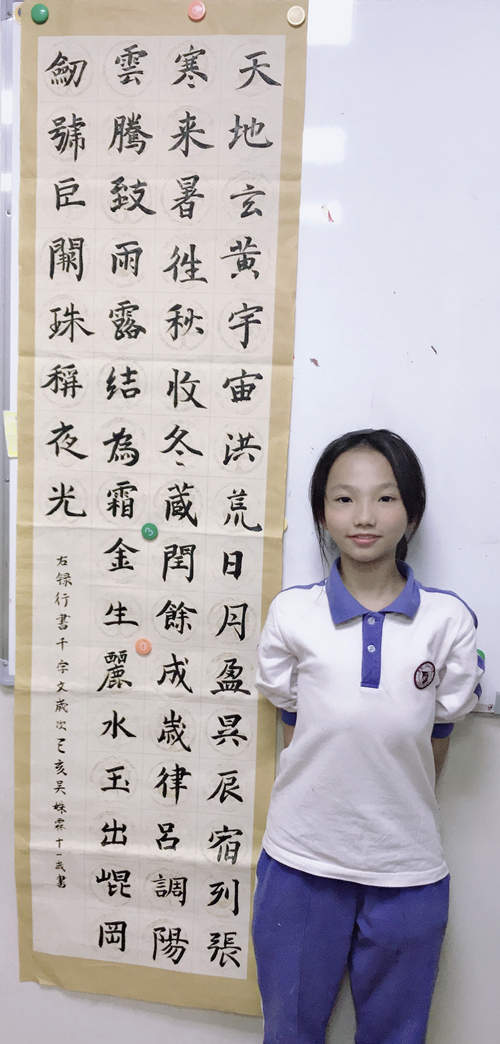 天地玄黄宇宙洪荒日月盈昃辰宿列張
寒来暑徃秋收冬蔵閏餘成歲律吕調陽
雲騰致雨露結為霜金生麗水玉出崐岡
劒號巨闕珠稱夜光
右録行書千字文歲次己亥吴姝霖十一歲書